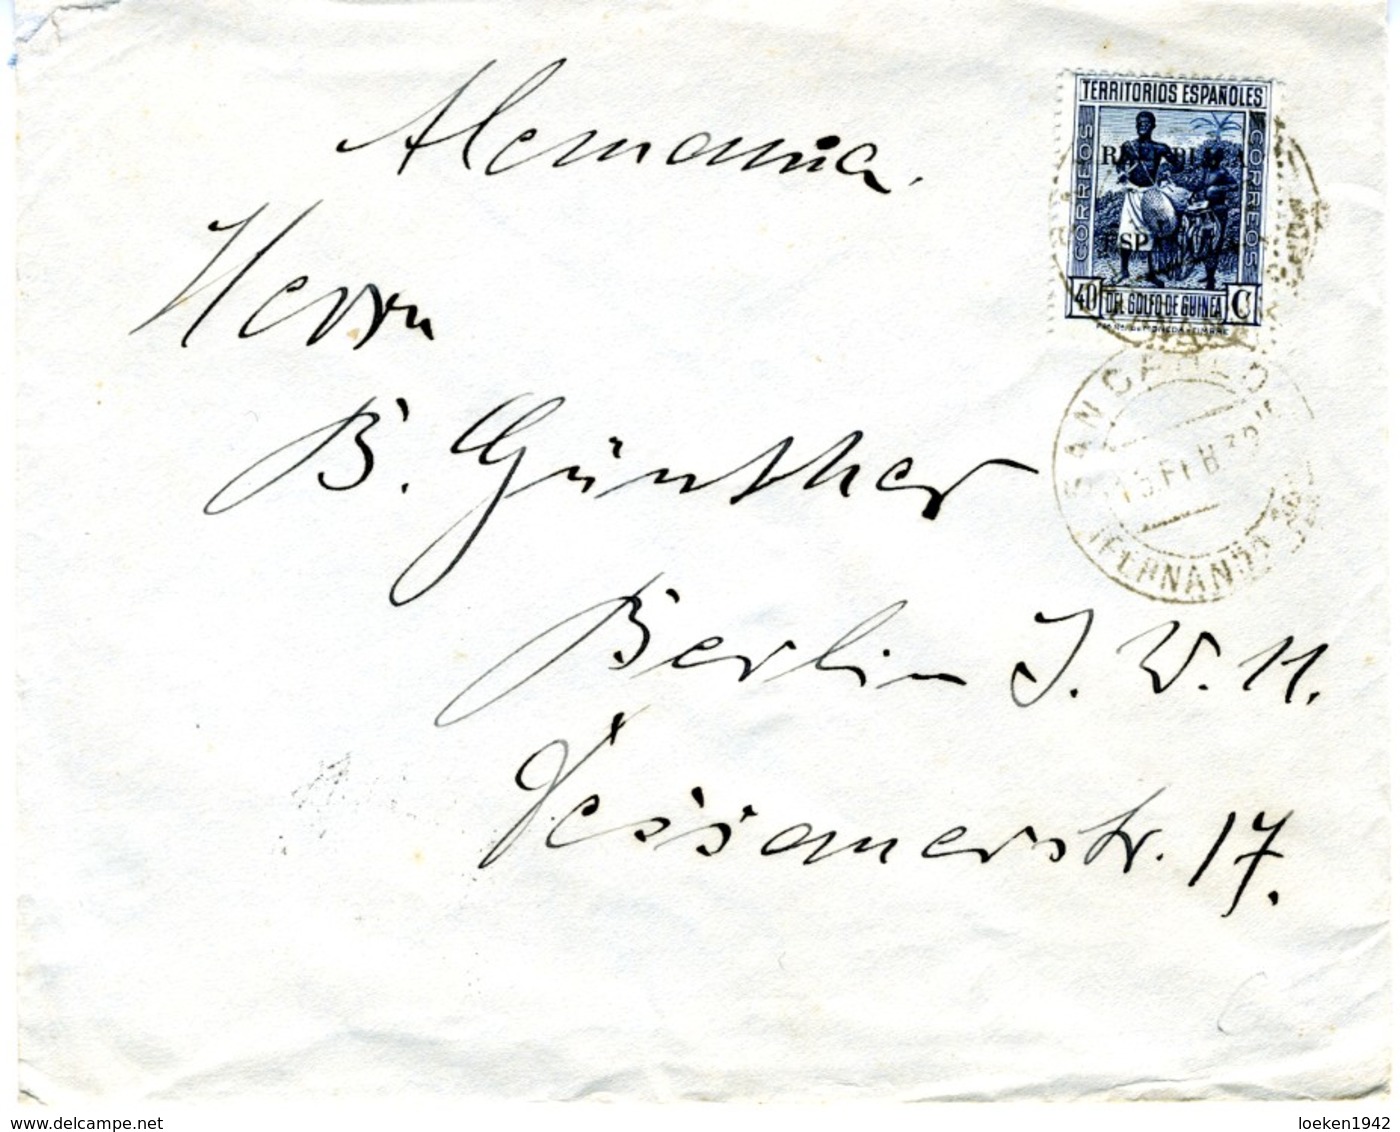 Alemania.
TERRITORIOS ESPAÑOLES
CORREOS
CORREOS
REPUBLICA
ESPAÑOLA
40 DEL GOLFO DE GUINEA C
Herrn
SAN CARLOS
FEB
FERNANDO
B. Günther
Berlin S. W. 11.
Dessauerstr. 17.
www.delcampe.net
loeken1942